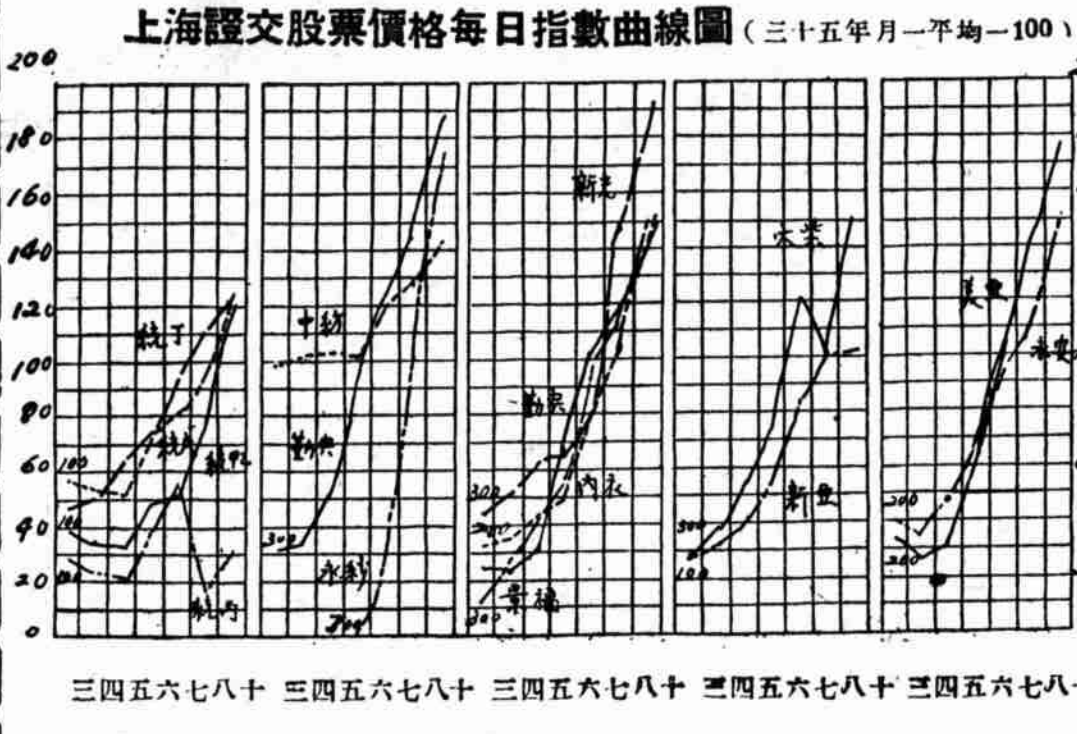 上海證交股票價格每日指數曲線圖（三十五年月一平均一100）
200
180
160
140
120
100
80
60
40
20
0
統丁
100
100
100
統丙
中紡
勤興
300
永紗
新光
勤興
300
內衣
景福
300
新亞
300
100
美亞
200
200
三四五六七八十 三四五六七八十 三四五六七八十 三四五六七八十 三四五六七八十